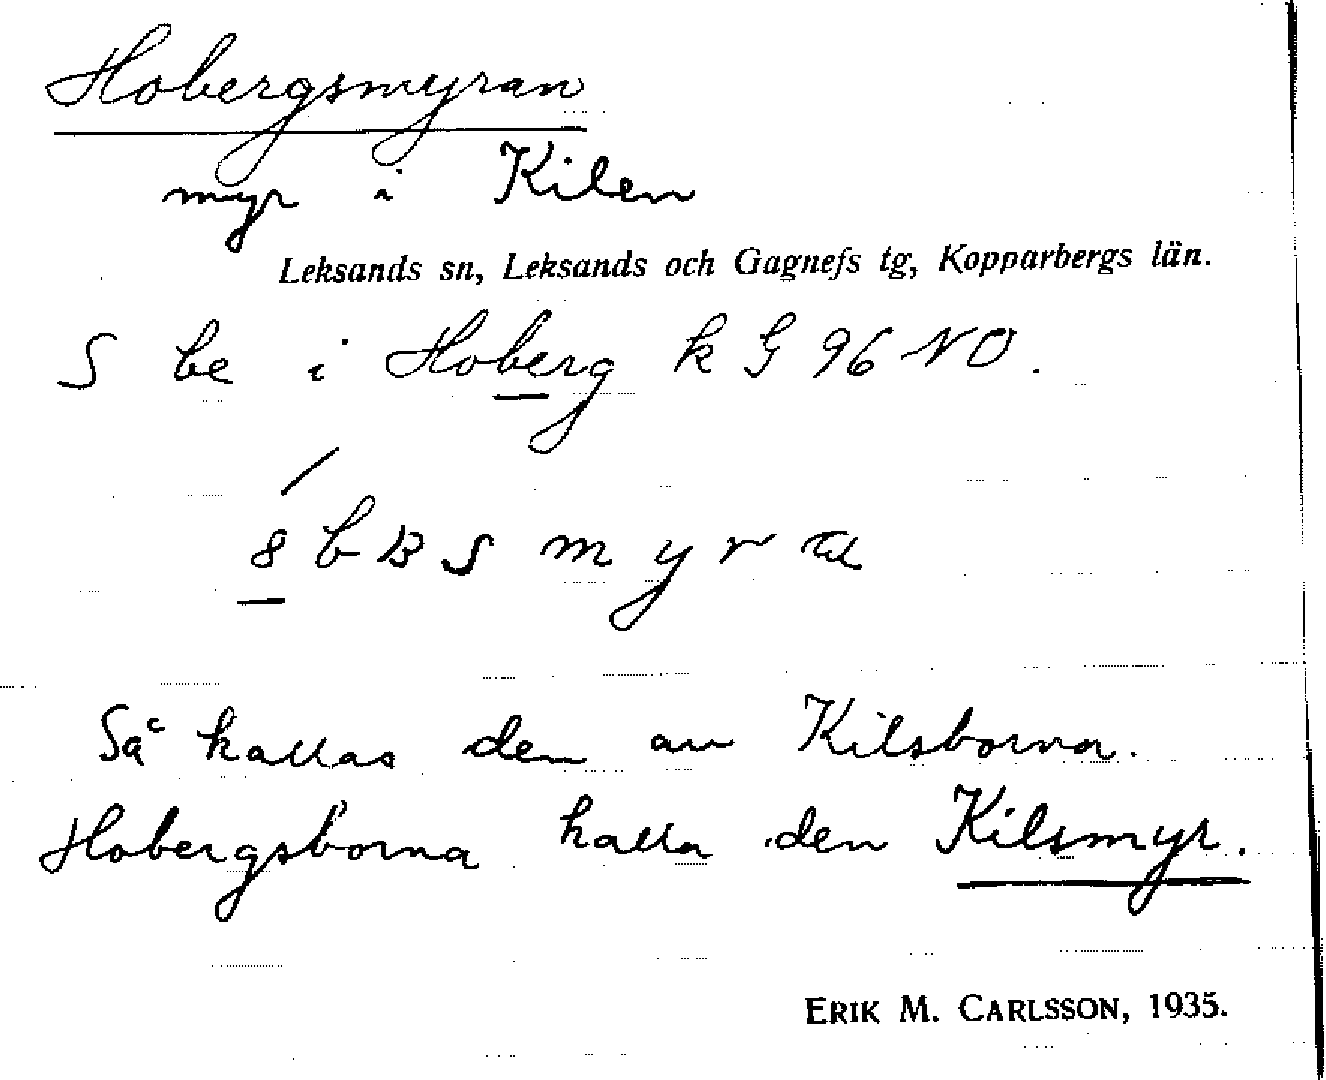 Hobergsmyran
myr i Kilen
Leksands sn, Leksands och Gagnefs tg, Kopparbergs län.
S be i Hoberg k G 96 NO.
Så kallas den av Kilsborna.
Hobergsborna kalla den Kilsmyr.
ERIK M. CARLSSON, 1935.